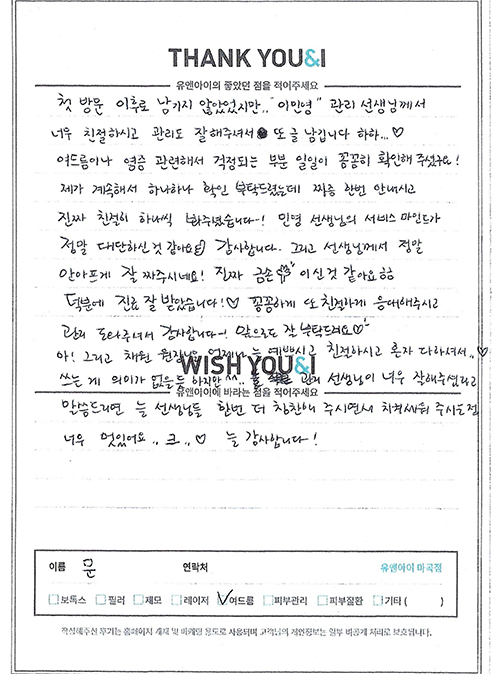 THANK YOU&I
유앤아이의 좋았던 점을 적어주세요
첫 방문 이후로 남기지 않았었지만.. "이민영" 관리 선생님께서
너무 친절하시고 관리도 잘해주셔서 또 글 남깁니다 하하...♡
여드름이나 염증 관련해서 걱정되는 부분 일일이 꼼꼼히 확인해 주셨구요!
제가 계속해서 하나하나 확인 부탁드렸는데 짜증 한번 안내시고
진짜 친절히 하나씩 봐주셨습니다~! 민영 선생님의 서비스 마인드가
정말 대단하신 것 같아요 감사합니다. 그리고 선생님께서 정말
안아프게 잘 짜주시네요! 진짜 금손 이신 것 같아요
덕분에 진료 잘 받았습니다!♡ 꼼꼼하게 또 친절하게 응대해주시고
관리 도와주셔서 감사합니다~! 앞으로도 잘 부탁드려요♡
아! 그리고 채원 원장님은 언제나 늘 예쁘시고 친절하시고 혼자 다하셔서..♡
WISH YOU&I
쓰는 게 의미가 없을 듯 하지만 ^^.. 관리 선생님이 너무 잘해주셨다고
유앤아이에 바라는 점을 적어주세요
말씀드리면 늘 선생님들 한번 더 칭찬해 주시면서 치켜세워 주시는점
너무 멋있어요.. 크..♡ 늘 감사합니다!
이름 문 연락처 유앤아이 마곡점
보톡스 필러 제모 레이저 여드름 피부관리 피부질환 기타 ( )
작성해주신 후기는 홈페이지 게재 및 마케팅 용도로 사용되며 고객님의 개인정보는 일부 비공개 처리로 보호됩니다.